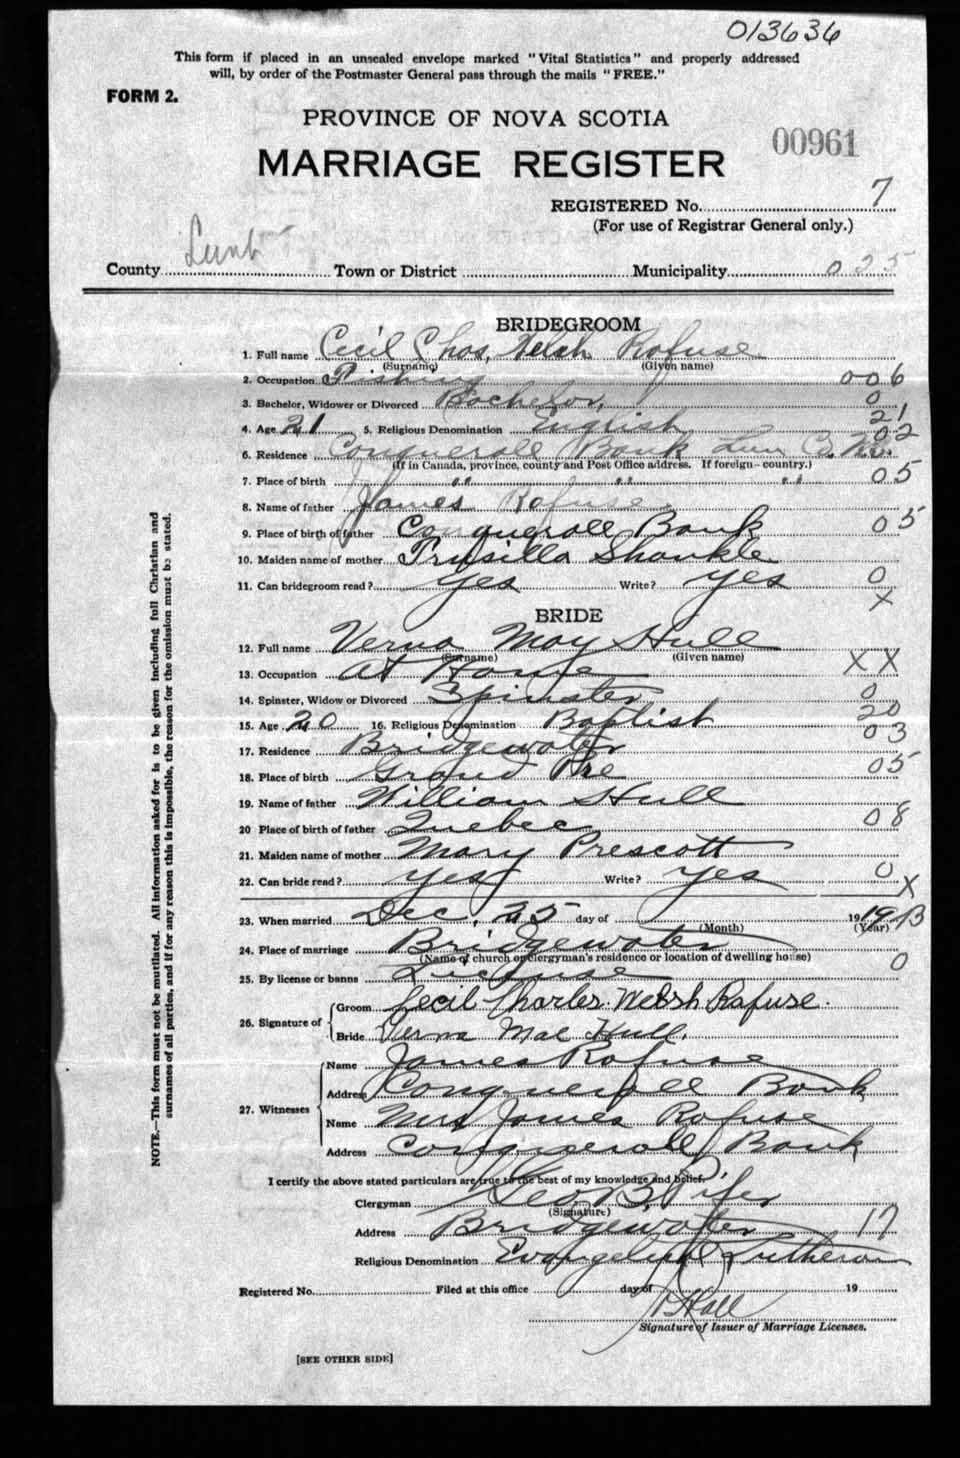 013636
This form if placed in an unsealed envelope marked "Vital Statistics" and properly addressed
will, by order of the Postmaster General pass through the mails "FREE."
FORM 2.
PROVINCE OF NOVA SCOTIA
00961
MARRIAGE REGISTER
REGISTERED No. 7
(For use of Registrar General only.)
County Lunb Town or District Municipality 025
BRIDEGROOM
1. Full name Cecil Chas. Welsh Rafuse
(Surname) (Given name)
2. Occupation Fishing 006
3. Bachelor, Widower or Divorced Bachelor. 0
4. Age 21 5. Religious Denomination English 21
02
6. Residence Conquerall Bank Lun Co. N.S.
(If in Canada, province, county and Post Office address. If foreign—country.)
7. Place of birth " " " 05
8. Name of father James Rafuse
9. Place of birth of father Conquerall Bank 05
10. Maiden name of mother Prusilla Shankle
11. Can bridegroom read? Yes Write? Yes 0
X
BRIDE
12. Full name Verna May Hull
(Surname) (Given name)
13. Occupation At Home XX
14. Spinster, Widow or Divorced Spinster 0
15. Age 20 16. Religious Denomination Baptist 20
17. Residence Bridgewater 03
18. Place of birth Grand Pre 05
19. Name of father William Hull
20 Place of birth of father Quebec 08
21. Maiden name of mother Mary Prescott
22. Can bride read? Yes Write? Yes 0
X
23. When married Dec. 25 day of 1919 B
(Month) (Year)
24. Place of marriage Bridgewater
(Name of church or clergyman's residence or location of dwelling house) 0
25. By license or banns License
26. Signature of Groom Cecil Charles Welsh Rafuse.
Bride Verna Mae Hull.
27. Witnesses Name James Rafuse
Address Conquerall Bank
Name Mrs James Rafuse
Address Conquerall Bank
I certify the above stated particulars are true to the best of my knowledge and belief.
Clergyman Geo. B. Pifer
(Signature)
Address Bridgewater 17
Religious Denomination Evangelical Lutheran
Registered No. Filed at this office day of 19
Hall
Signature of Issuer of Marriage Licenses.
[SEE OTHER SIDE]
NOTE.—This form must not be mutilated. All information asked for is to be given including full Christian and
surnames of all parties, and if for any reason this is impossible, the reason for the omission must be stated.